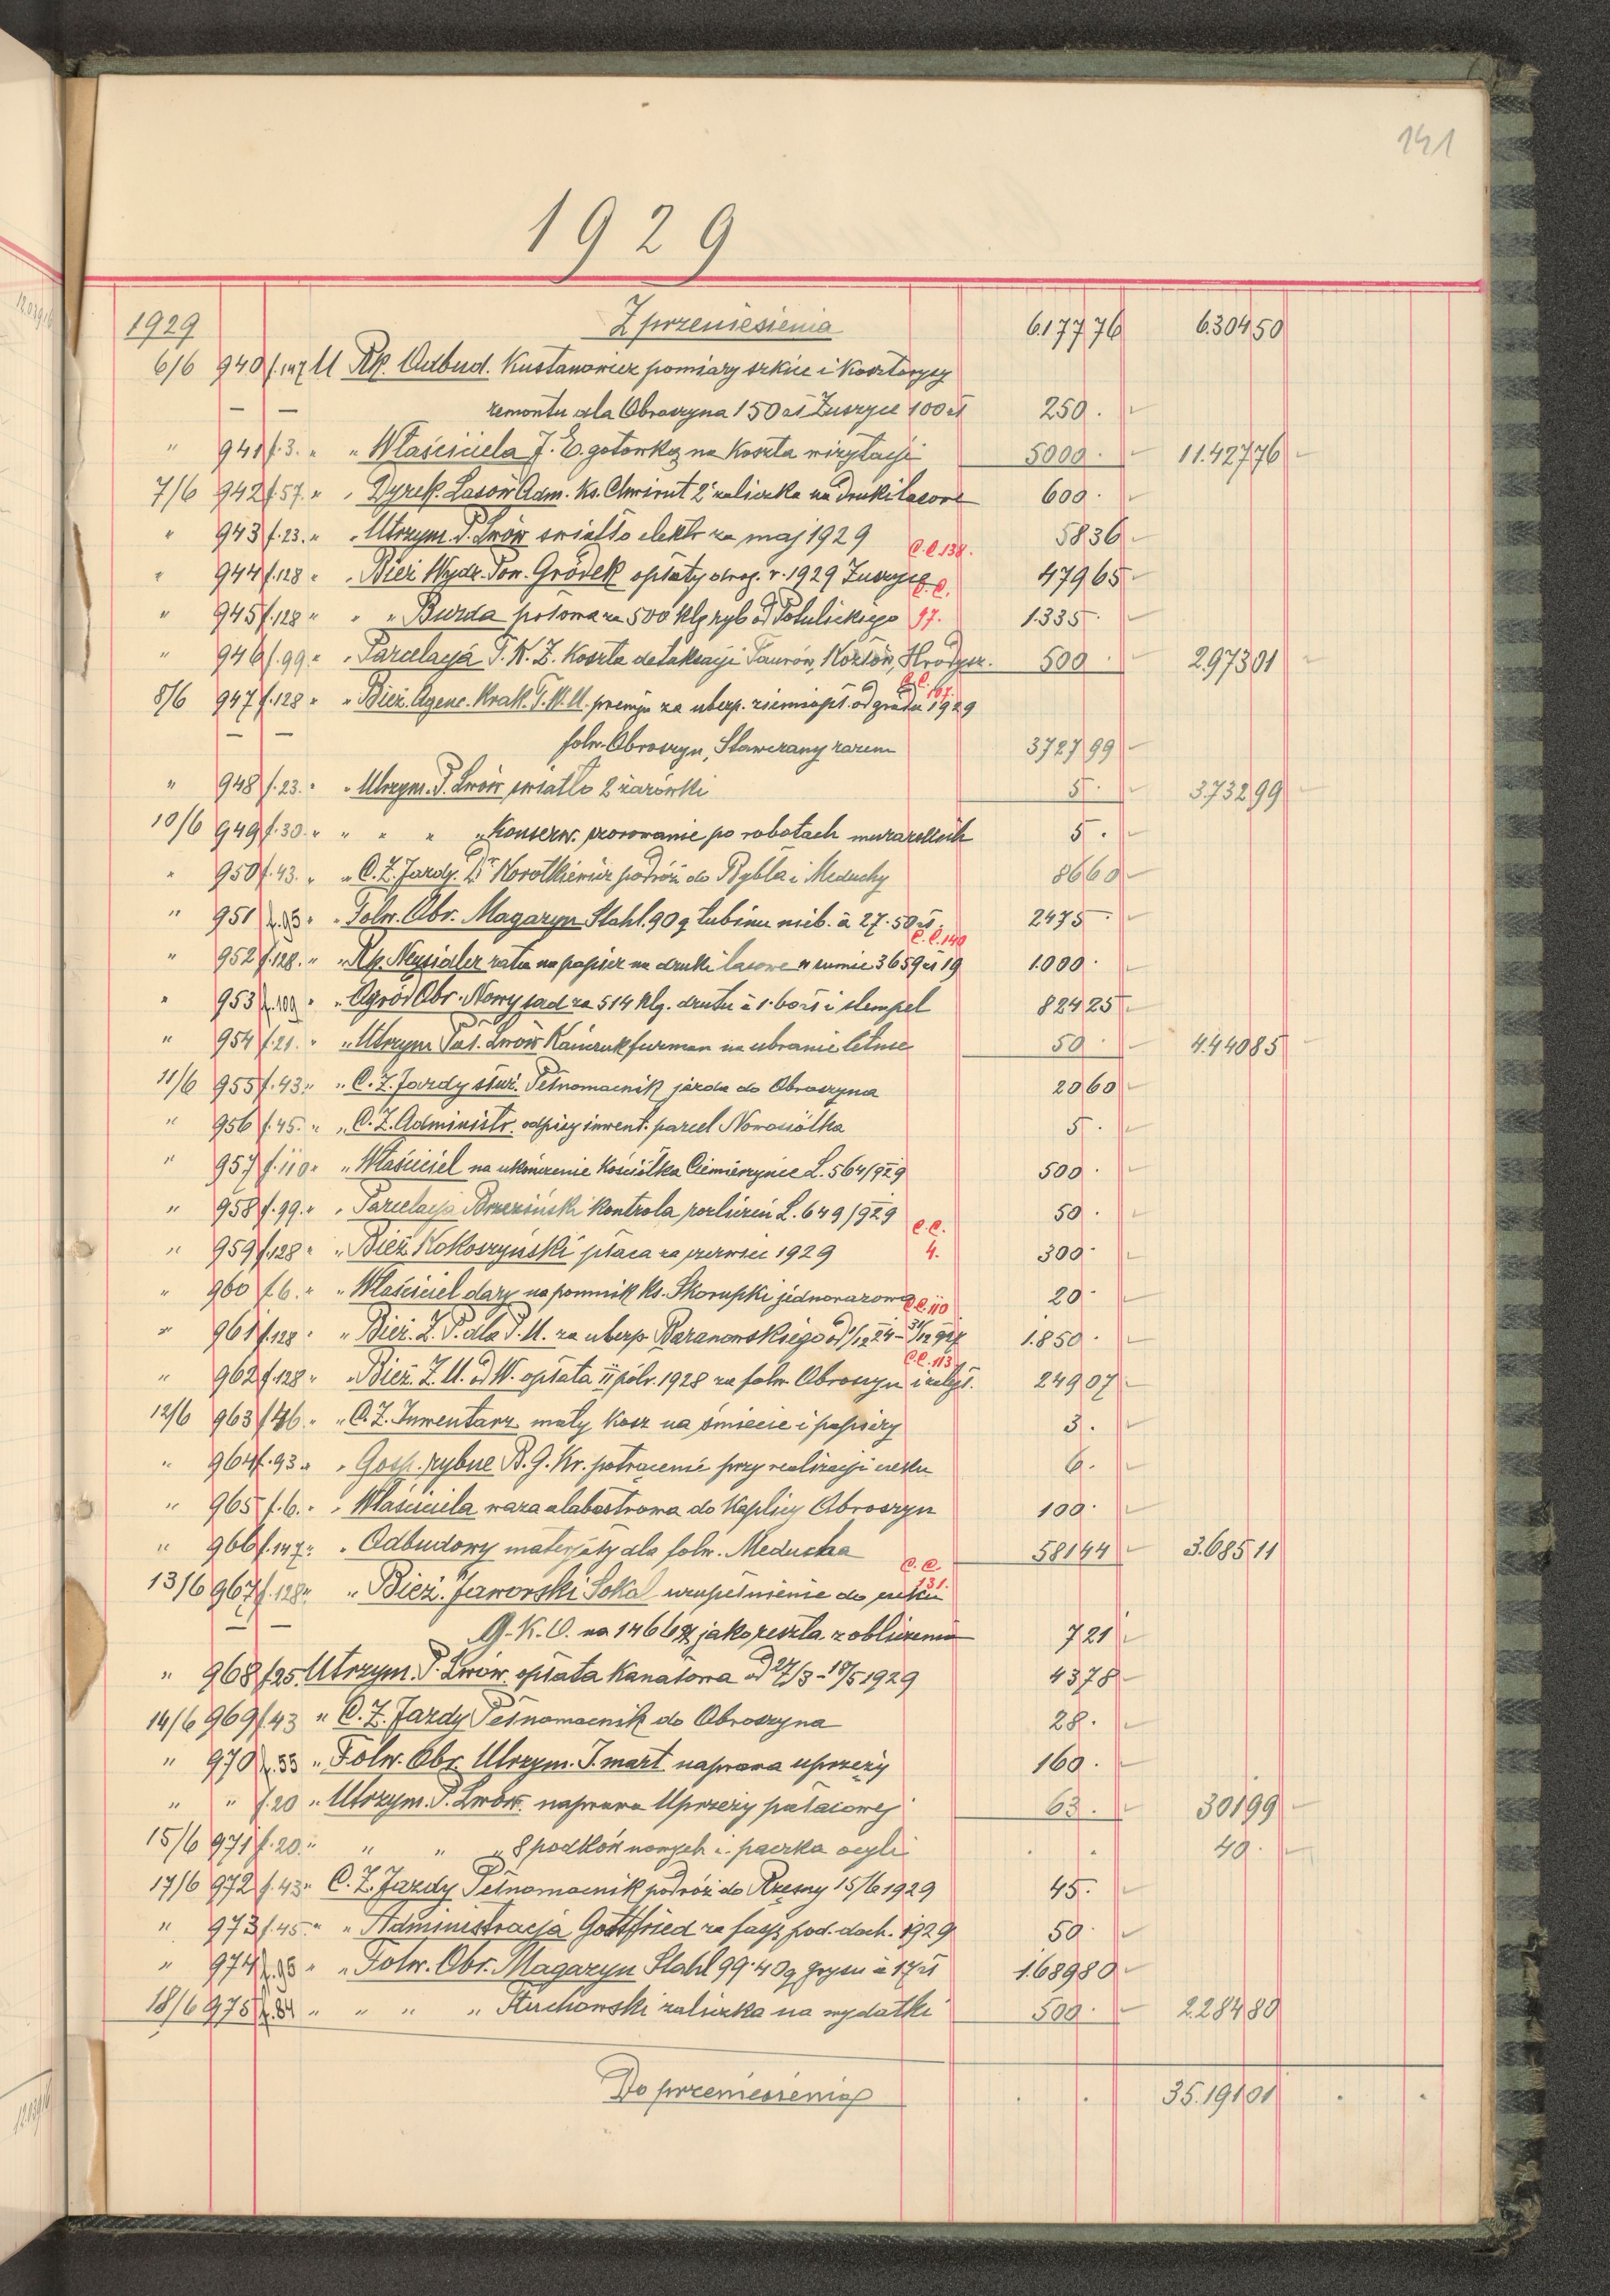 141
1929
1929 Z przeniesienia 6.177 76 6.304 50
6/6 940 f.147 U Rk. Odbud. Kustanowicz pomiary szkice i kosztorysy
— — remontu dla Obroszyna 150 zł Zuszyce 100 zł 250 .
" 941 f.3. " " Właściciela J. E. gotówką na koszta wizytacji 5000 . 11.427 76
7/6 942 f.57. " " Dyrek. Lasów Adm. Ks. Chwirut 2 zaliczka na druki lasowe 600 .
" 943 f.23. " " Utrzym. P. Lwów światło elektr za maj 1929 58 36
C.C. 138.
" 944 f.128 " " Bież Wydz. Pow. Gródek opłaty drog. r. 1929 Zuszyce 479 65
C.C.
" 945 f.128 " " " Burda połowa za 500 klg ryb od Potulickiego 97. 1.335 .
" 946 f.99. " " Parcelacja T. K. Z. Koszta detaksacji Taurów, Kozłów, Hrodyszcz. 500 . 2.973 01
C.C. 107.
8/6 947 f.128 " " Bież. Agenc. Krak. T. W. U. premja za ubezp. ziemiopł. od gradu 1929
— — folw. Obroszyn, Stawczany razem 3727 99
" 948 f.23. " " Utrzym. P. Lwów światło 2 żarówki 5 . 3.732 99
10/6 949 f.30. " " " " " Konserw. szorowanie po robotach murarskich 5 .
" 950 f.43. " " C. Z. Jazdy. Dr Korotkiewicz podróż do Bybła i Meduchy 86 60
" 951 f.95 " " Folw. Obr. Magazyn Stahl. 90 q łubinu nieb. à 27.50 zł. 2475 .
C.C. 140
" 952 f.128. " " Rk. Neusidler rata na papier na druki lasowe w sumie 3659 zł 19 1.000 .
" 953 f.109 " " Ogród Obr. Nowy sad za 514 klg. drutu à 1.60 zł i stempel 824 25
" 954 f.21. " " Utrzym Pał. Lwów Kańczuk furman na ubranie letnie 50 . 4.440 85
11/6 955 f.43. " " C. Z. Jazdy służ. Pełnomocnik jazda do Obroszyna 20 60
" 956 f.45. " " C. Z. Administr. odpisy inwent. parcel Nowosiółka 5 .
" 957 f.110 " " Właściciel na ukończenie Kościółka Ciemierzynce L. 564/929 500 .
" 958 f.99. " " Parcelacja Brzeziński kontrola rozliczeń L. 649/929 50 .
C.C.
" 959 f.128 " " Bież Kokoszyński płaca za czerwiec 1929 4. 300 .
" 960 f.6. " " Właściciel dary na pomnik Ks. Skorupki jednorazowo 20 .
C.C. 110
" 961 f.128 " " Bież. Z. P. dla P. U. za ubezp Baranowskiego od 1/12 24 – 31/12 927 1.850 .
C.C. 113
" 962 f.128 " " Bież. Z. U. od W. opłata II półr. 1928 za folw. Obroszyn i zalgł. 249 07
12/6 963 f.46. " " C. Z. Inwentarz mały kosz na śmiecie i papiery 3 .
" 964 f.93. " " Gosp. rybne B. G. Kr. potrącenie przy realizacji czeku 6 .
" 965 f.6. " " Właściciela waza alabastrowa do Kaplicy Obroszyn 100 .
" 966 f.147. " " Odbudowy materjały dla folw. Meducha 581 44 3.685 11
C.C. 131.
13/6 967 f.128 " " Bież. Jaworski Sokal uzupełnienie do czeku
— — P. K. O. na 1466 zł jako reszta z obliczenia 721
" 968 f.25. Utrzym. P. Lwów. opłata kanałowa od 27/3 – 18/5 1929 43 78
14/6 969 f.43 " C. Z. Jazdy Pełnomocnik do Obroszyna 28 .
" 970 f.55 " Folw. Obr. Utrzym. I. mart naprawa uprzęży 160 .
" " f.20 " Utrzym. P. Lwów. naprawa Uprzęży pałacowej 63 . 301 99
15/6 971 f.20. " " " " 8 podków nowych i paczka ocyli . . 40 .
17/6 972 f.43 " C. Z. Jazdy Pełnomocnik podróż do Rzęsny 15/6 1929 45 .
" 973 f.45. " " Administracja Gottfried za fasję pod. doch. 1929 50 .
" 974 f.95 " " Folw. Obr. Magazyn Stahl 99.40 q grysu à 17 zł 1.689 80
18/6 975 f.84 " " " " Stuchowski zaliczka na wydatki 500 . 2.284 80
Do przeniesienia . . 35.191 01 . .